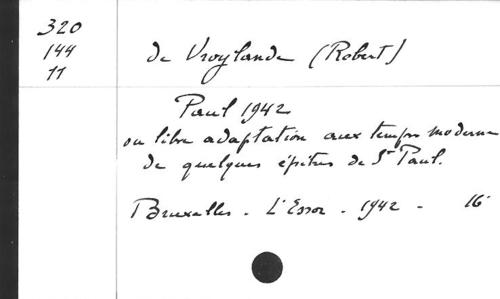 320
144
11
de Vroylande (Robert)
Paul 1942
ou libre adaptation aux temps modernes
de quelques épitres de St Paul.
Bruxelles - L'Essor - 1942 - 16°